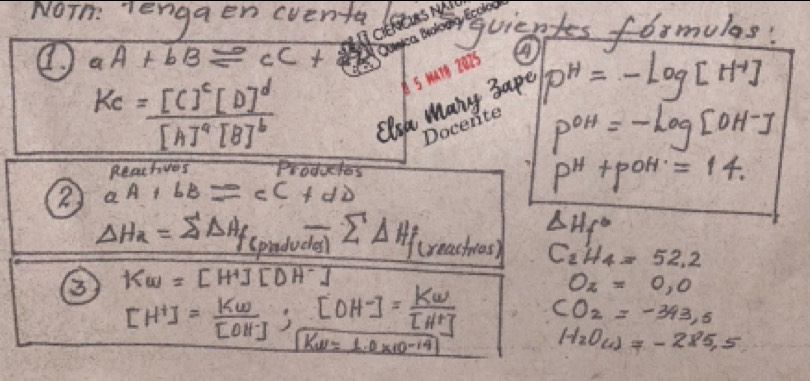 NOTA: Tenga en cuenta las siguientes fórmulas:
CIENCIAS NATU
Química Biología Ecología
05 MAYO 2025
Elsa Mary Zape
Docente
1. aA + bB ⇌ cC +
Kc = [C]^c [D]^d
[A]^a [B]^b
Reactivos Productos
2. aA + bB ⇌ cC + dD
ΔHR = ΣΔHf(productos) - ΣΔHf(reactivos)
3 Kw = [H+][OH-]
[H+] = Kw / [OH-] ; [OH-] = Kw / [H+]
Kw = 1.0x10-14
4
pH = -Log[H+]
pOH = -Log[OH-]
pH + pOH = 14.
ΔHf°
C2H4 = 52,2
O2 = 0,0
CO2 = -393,5
H2O(l) = -285,5